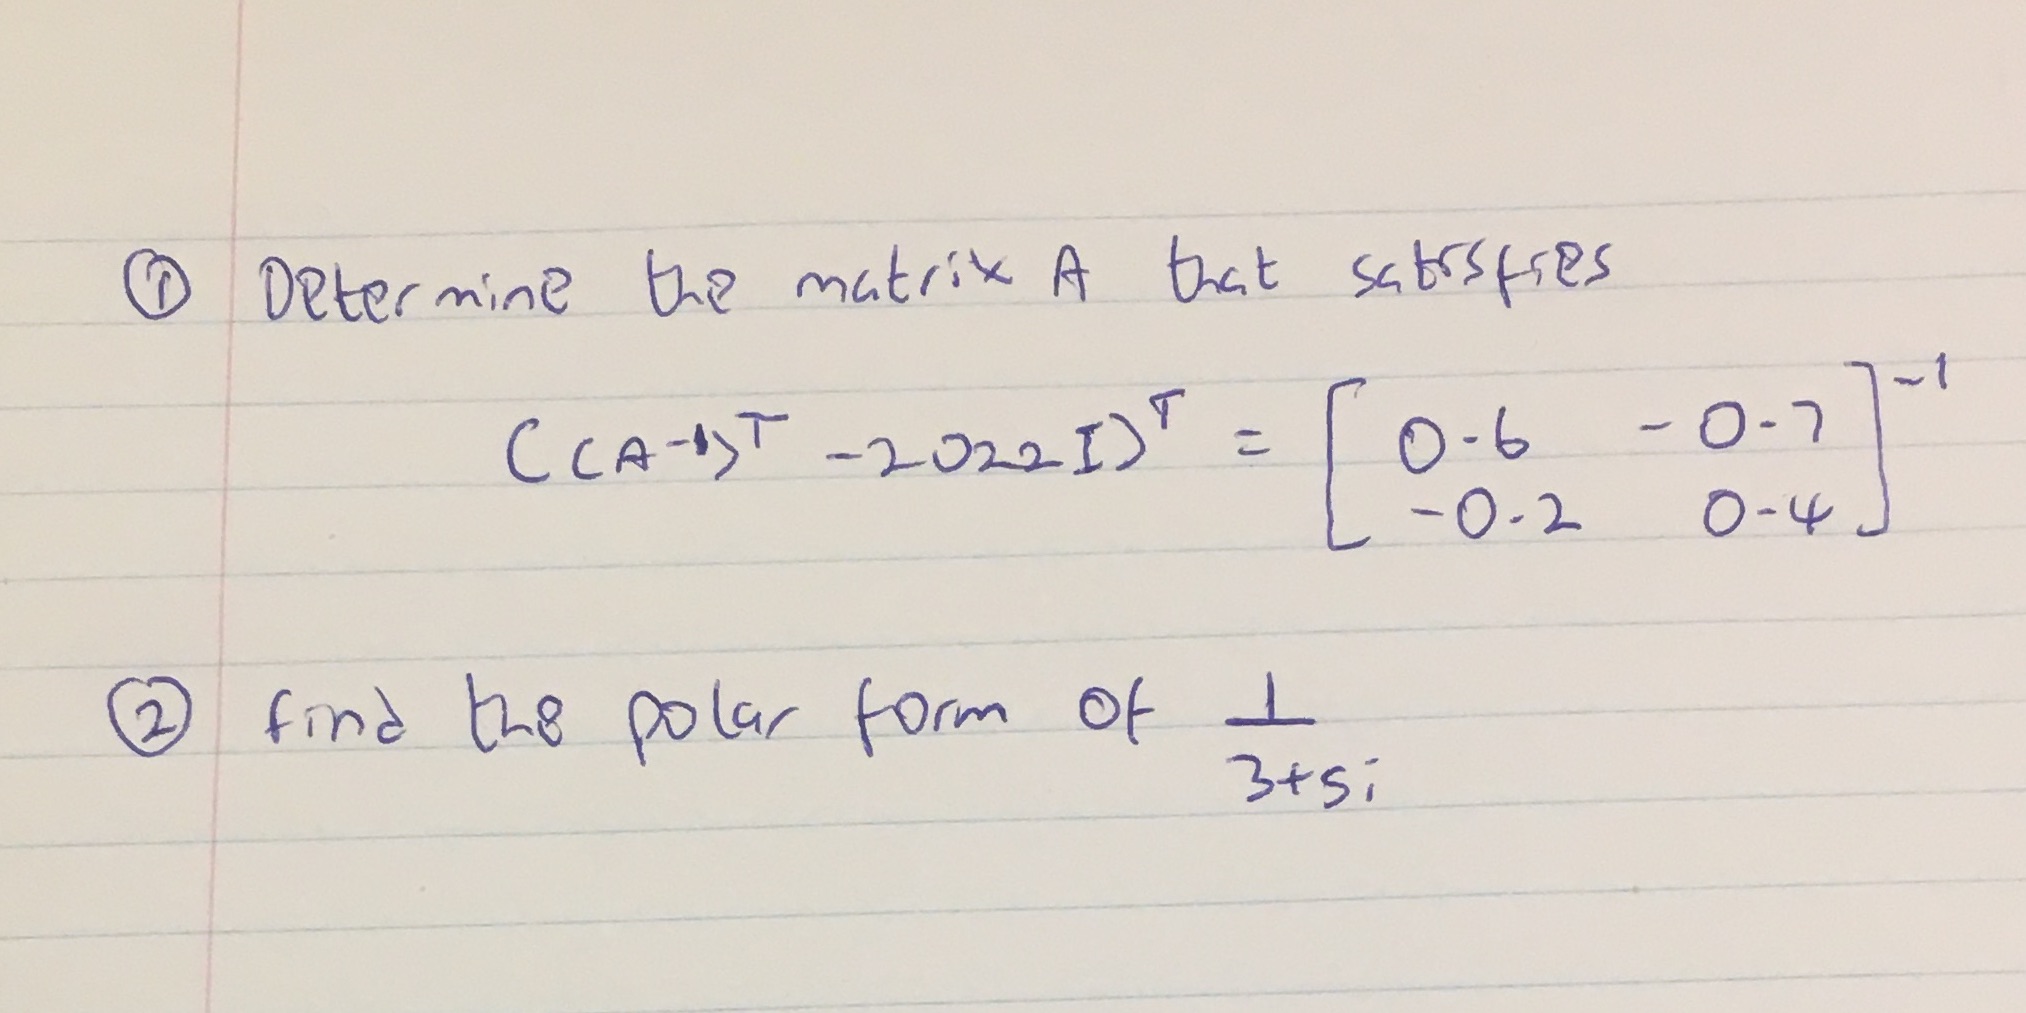 ① Determine the matrix A that satisfies
((A-1)ᵀ - 2022I)ᵀ = [0.6 -0.7
-0.2 0.4]⁻¹
② find the polar form of 1
3+5i